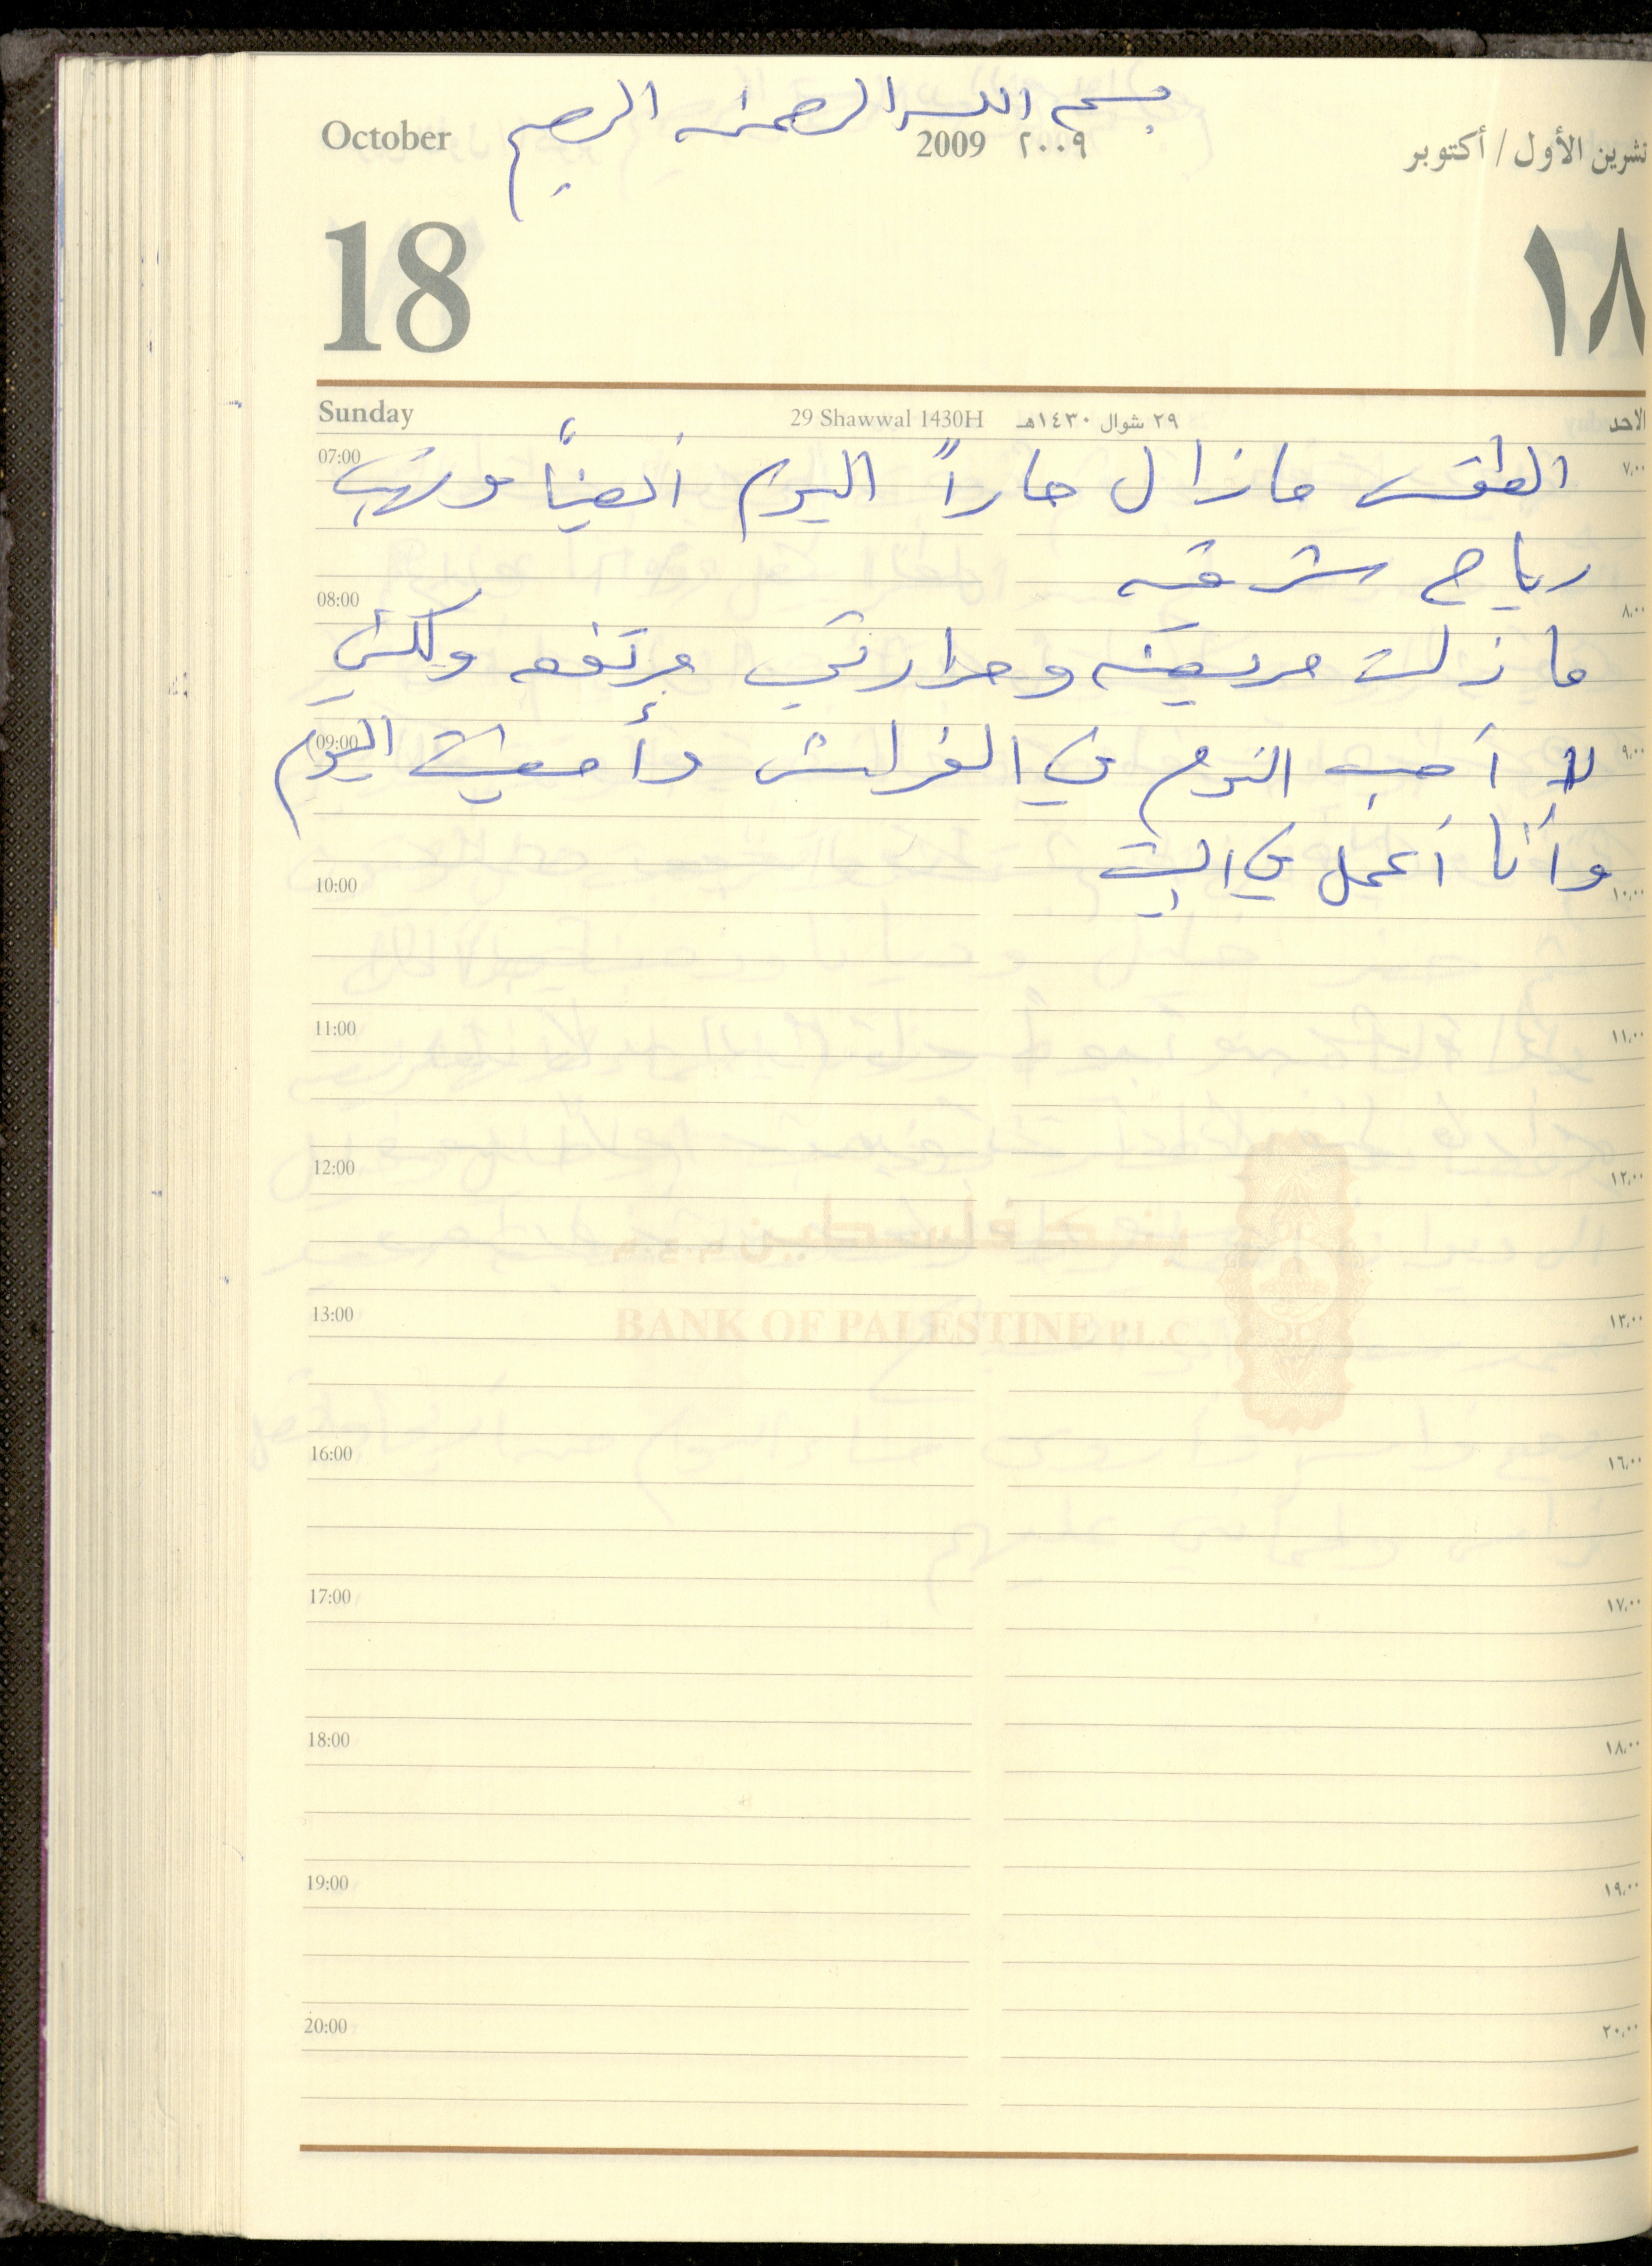 بسم الله الرحمن الرحيم
October 2009 ٢٠٠٩ تشرين الأول / أكتوبر
18 ١٨
Sunday 29 Shawwal 1430H ٢٩ شوال ١٤٣٠هـ الاحد
07:00 الطقس مازال حاراً اليوم أيضاً وتهب ٧,٠٠
رياح شرقيه
08:00 ٨,٠٠
ما زلت مريضه وحرارتي مرتفعه ولكني
09:00 لا أحب النوم في الفراش وأمضيت اليوم ٩,٠٠
وأنا أعمل في البيت
10:00 ١٠,٠٠
11:00 ١١,٠٠
12:00 ١٢,٠٠
بنك فلسطين
13:00 BANK OF PALESTINE P.L.C ١٣,٠٠
16:00 ١٦,٠٠
17:00 ١٧,٠٠
18:00 ١٨,٠٠
19:00 ١٩,٠٠
20:00 ٢٠,٠٠